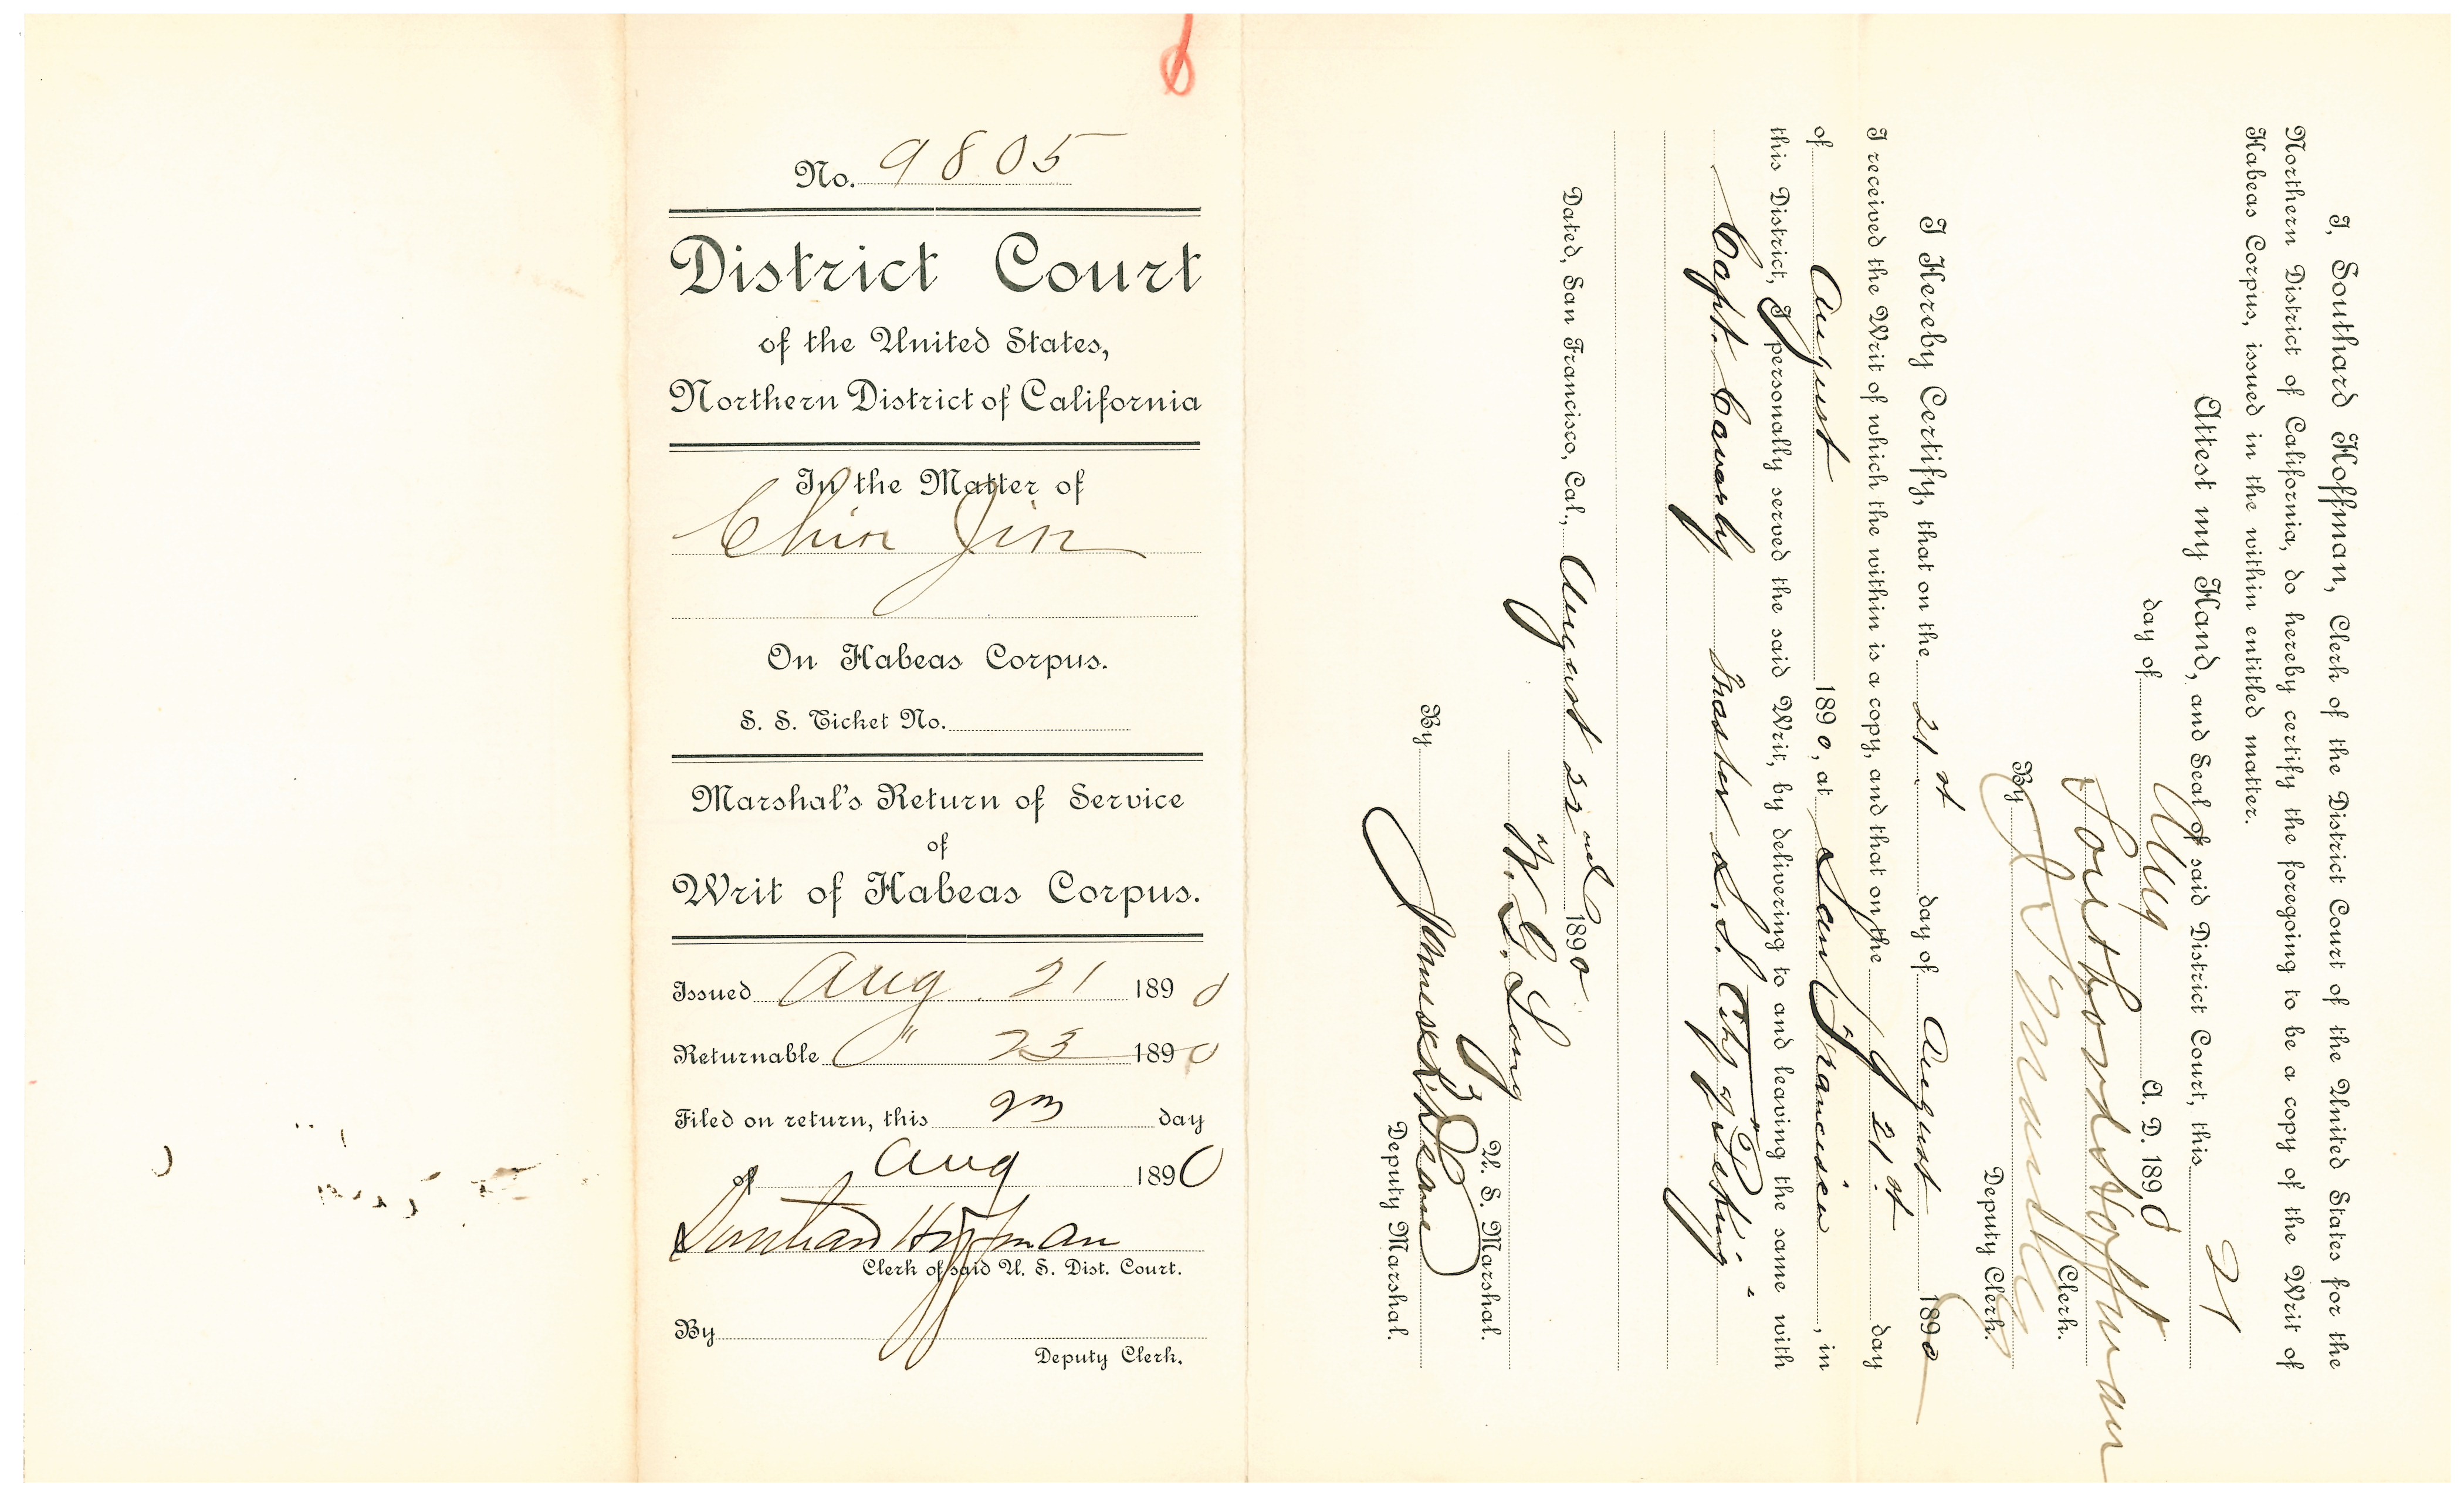 No. 9805
District Court
of the United States,
Northern District of California
In the Matter of
Chin Jin
On Habeas Corpus.
S. S. Ticket No.
Marshal's Return of Service
of
Writ of Habeas Corpus.
Issued Aug 21 1890
Returnable " 23 1890
Filed on return, this 23 day
of Aug 1890
Southard Hoffman
Clerk of said U. S. Dist. Court.
By
Deputy Clerk.
I, Southard Hoffman, Clerk of the District Court of the United States for the
Northern District of California, do hereby certify the foregoing to be a copy of the Writ of
Habeas Corpus, issued in the within entitled matter.
Attest my Hand, and Seal of said District Court, this 21
day of Aug A. D. 1890
Southard Hoffman
Clerk.
By
Deputy Clerk.
I Hereby Certify, that on the 21st day of August 1890
I received the Writ of which the within is a copy, and that on the 21st day
of August 1890, at San Francisco, in
this District, I personally served the said Writ, by delivering to and leaving the same with
Capt. Cavarly Master S.S. "City of Peking"
Dated, San Francisco, Cal., August 22nd 1890
W. G. Long
U. S. Marshal.
By
Deputy Marshal.